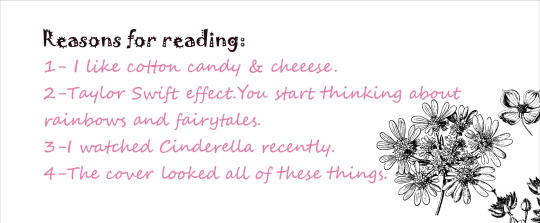 Reasons for reading:
1- I like cotton candy & cheeese.
2-Taylor Swift effect.You start thinking about
rainbows and fairytales.
3-I watched Cinderella recently.
4-The cover looked all of these things.